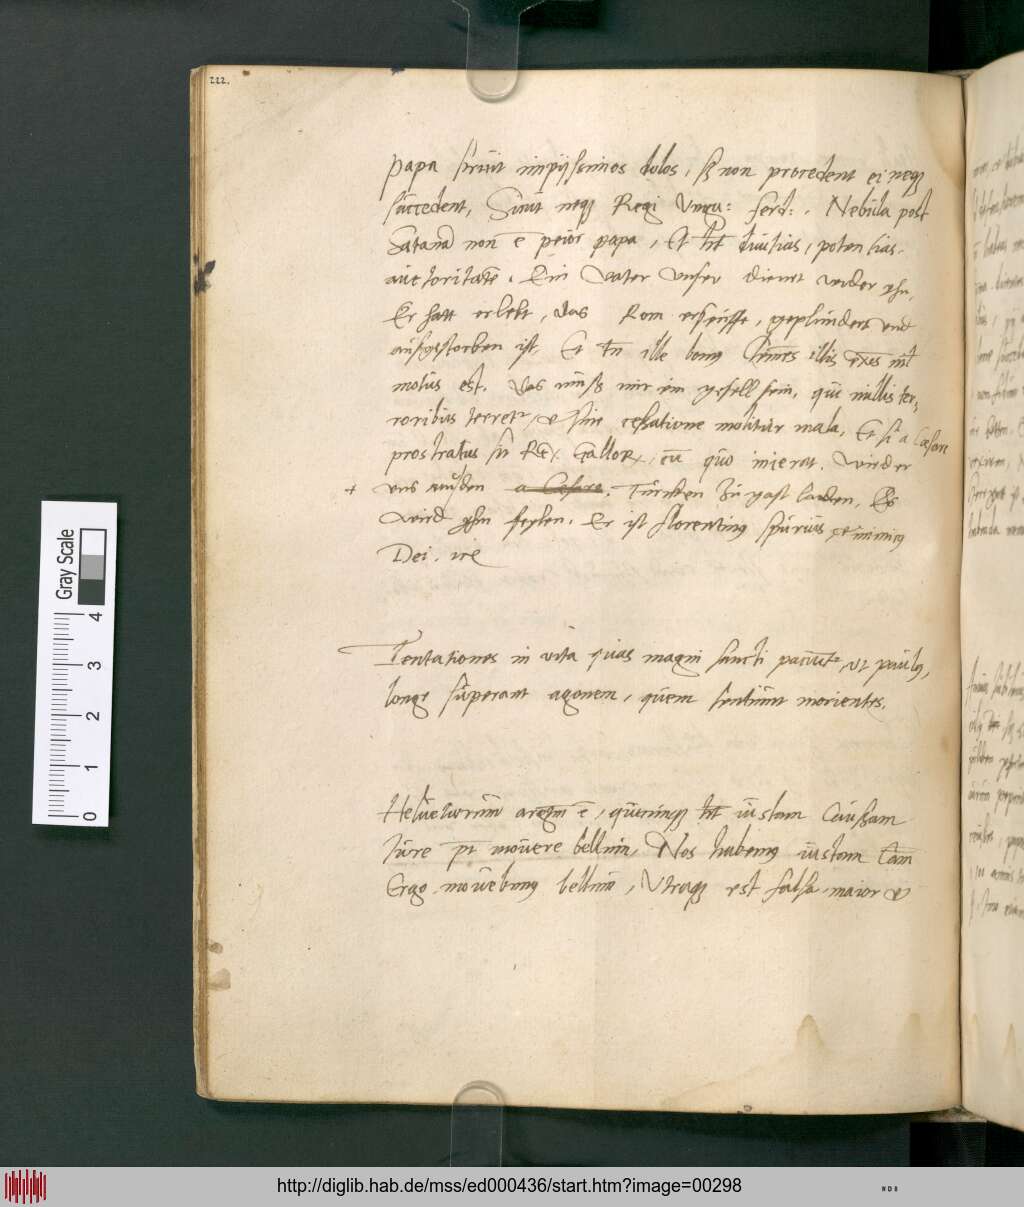 222.
Papa struit impijssimos dolos, sz non procedent ei neqz
succedent, Sicut neqz Regi Ungu: ferd:. Nebula post
Satanā non ē peior papa, Et ht divitias, potentias,
auctoritatē. Ein Vater unser dienet wider yhn,
Er hatt erlebt, das Rom erseufft, geplundert und
außgestorben ist, Et tn̄ ille
motus est. Das muß mir ein gesell sein, qui nullis ter=
roribus terret², & sine cessatione molitur mala, Et si a Cæsare
prostratus sit Rex Gallor, cū quo inierat. Wird er
+ uns auß den a Cæsare. Türcken zu gast laden, Es
wird yhm feylen. Er ist florentinus spurius
Dei. ire
Tentationes in vita quas magni sancti patiunt², ut paulus,
longe superant agonem, quem sentiunt morientes.
Helvetiorum argtm ē, quicunqz ht iustam causam
iure pt movere bellum, Nos habemus iustam cām
Ergo movebimus bellum, Utraqz est falsa, maior &
Gray Scale
0 1 2 3 4
http://diglib.hab.de/mss/ed000436/start.htm?image=00298